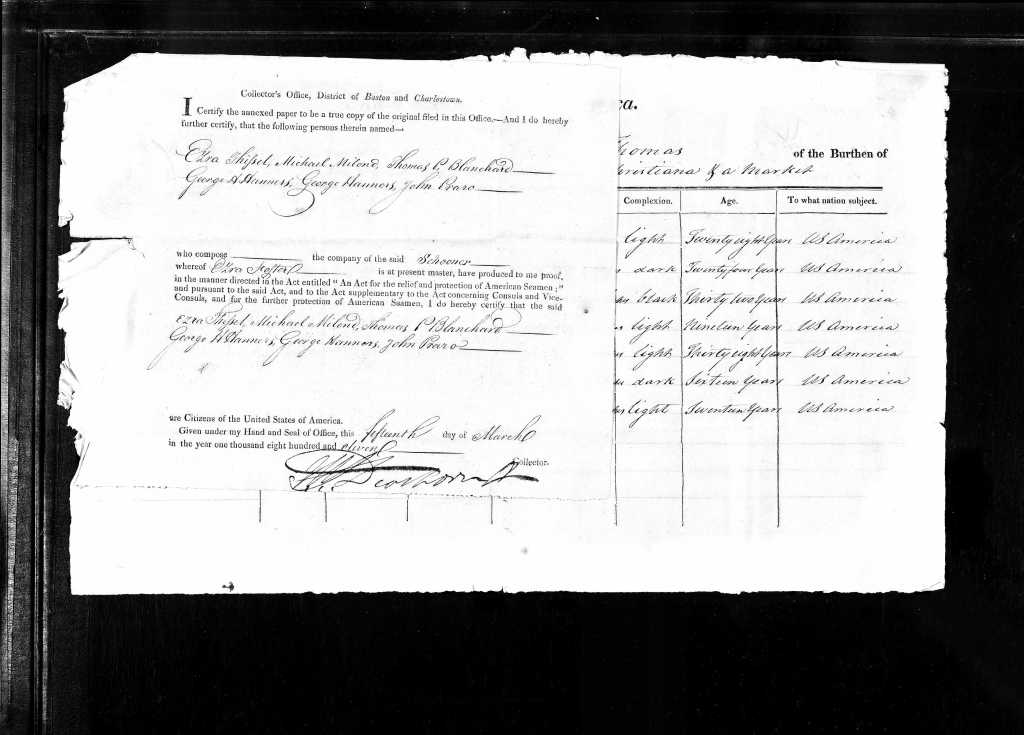 Collector's Office, District of Boston and Charlestown.
I Certify the annexed paper to be a true copy of the original filed in this Office.—And I do hereby
further certify, that the following persons therein named—
Ezra Thissel, Michael Milend, Thomas P. Blanchard
George H Hanners, George Hanners, John Praro
who compose the company of the said Schooner
whereof Ezra Foster is at present master, have produced to me proof,
in the manner directed in the Act entitled "An Act for the relief and protection of American Seamen;"
and pursuant to the said Act, and to the Act supplementary to the Act concerning Consuls and Vice-
Consuls, and for the further protection of American Seamen, I do hereby certify that the said
Ezra Thissel, Michael Milend, Thomas P Blanchard
George H Hanners, George Hanners, John Praro
are Citizens of the United States of America.
Given under my Hand and Seal of Office, this fifteenth day of March
in the year one thousand eight hundred and eleven
Collector.
ca.
Thomas of the Burthen of
hristiana & a Market
Complexion. Age. To what nation subject.
light Twenty eight Years US America
dark Twenty four Years US America
black Thirty two Years US America
light Nineteen Years US America
light Thirty eight Years US America
dark Sixteen Years US America
light Seventeen Years US America